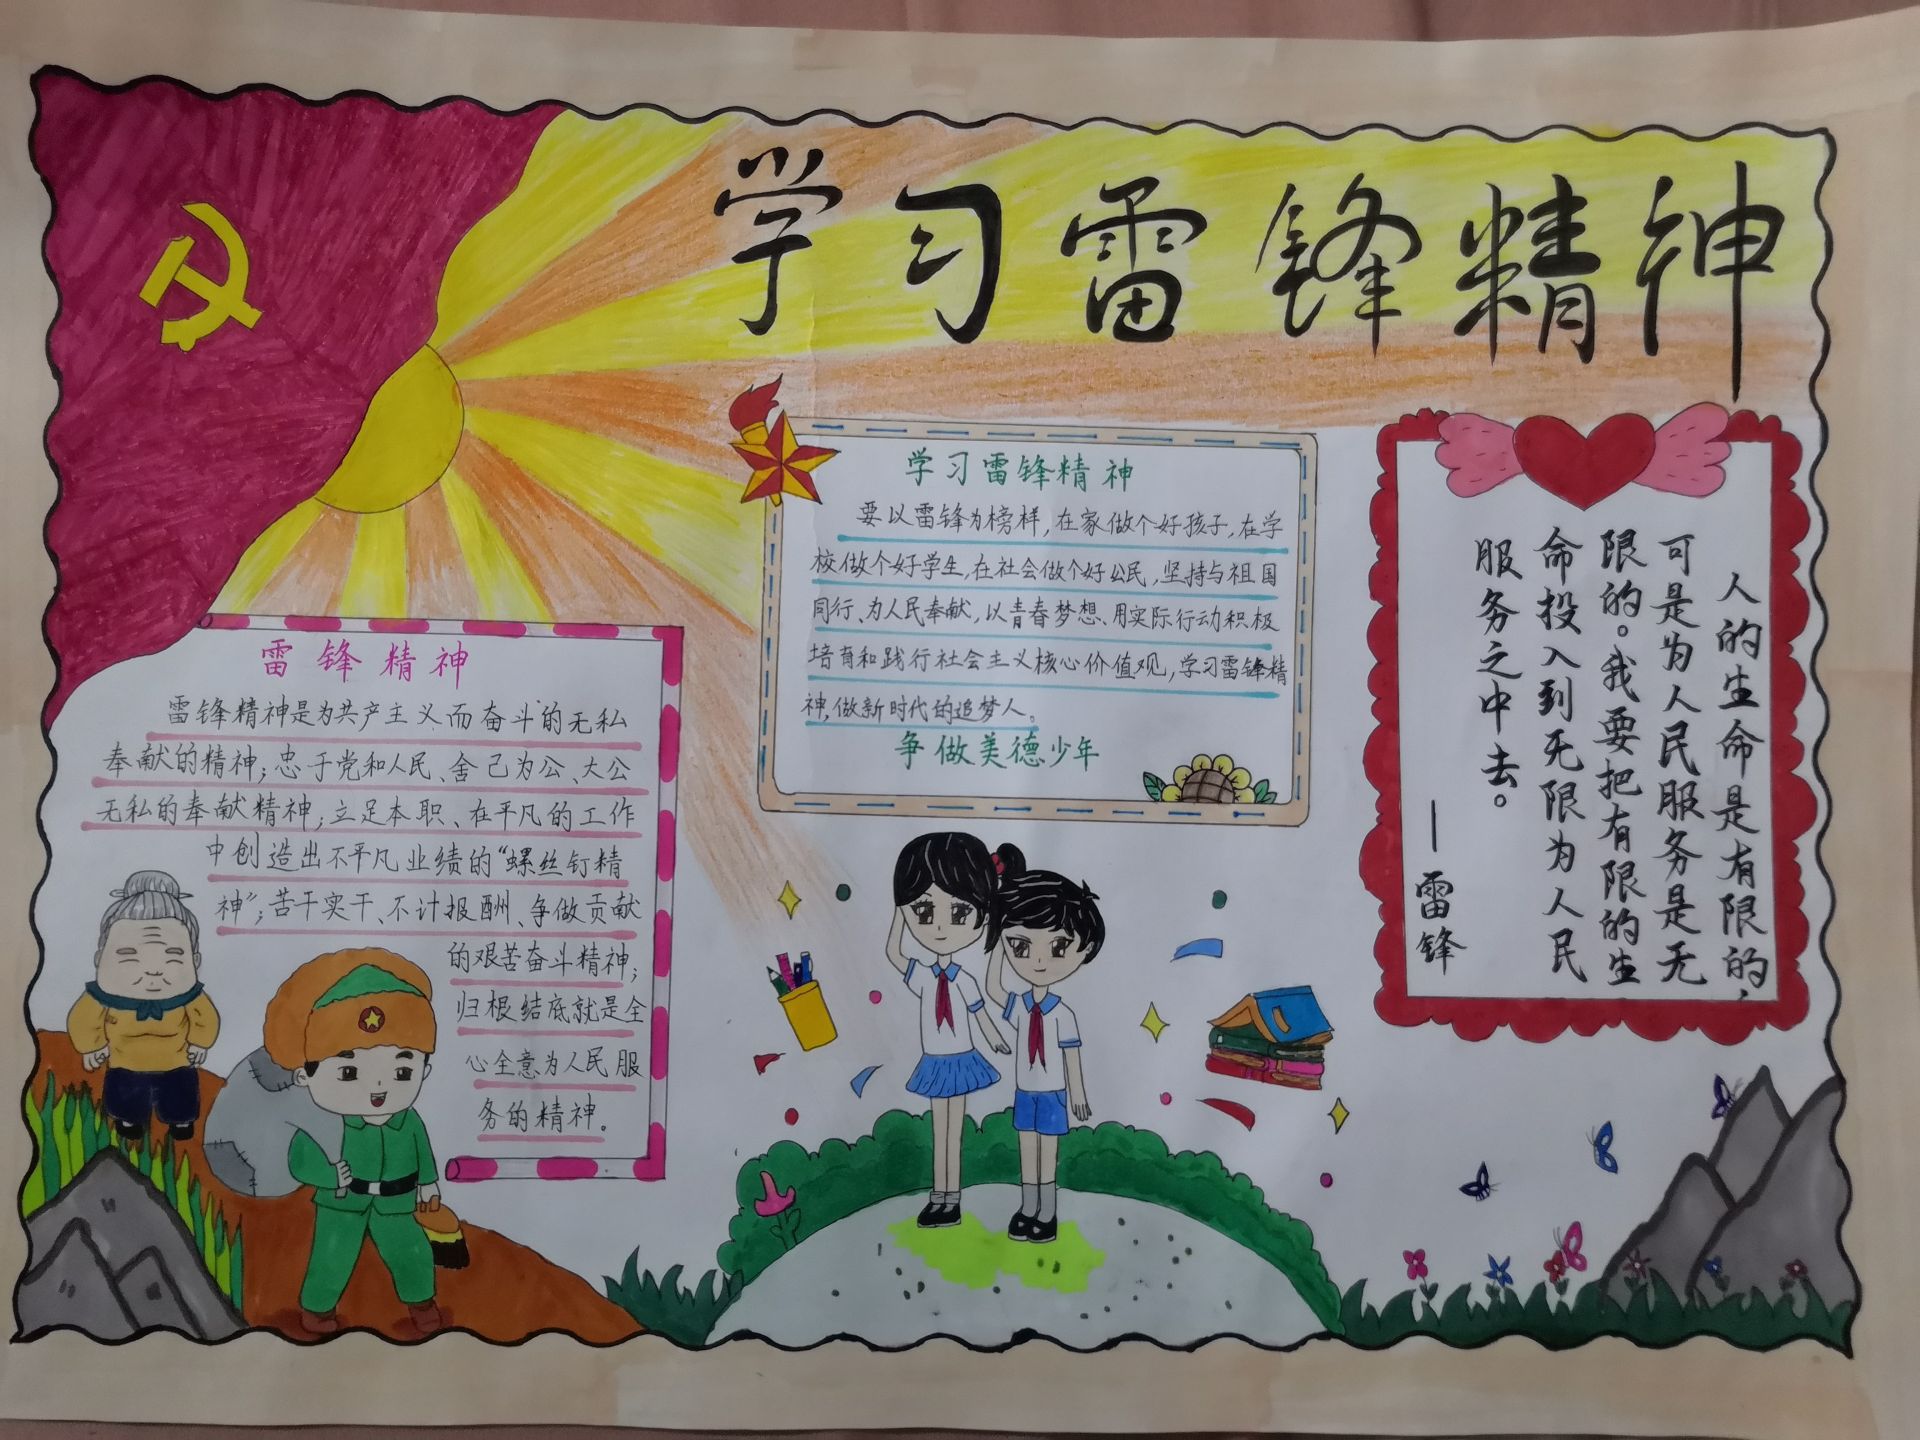 学习雷锋精神
雷锋精神
雷锋精神是为共产主义而奋斗的无私
奉献的精神；忠于党和人民、舍己为公、大公
无私的奉献精神；立足本职、在平凡的工作
中创造出不平凡业绩的“螺丝钉精
神”；苦干实干、不计报酬、争做贡献
的艰苦奋斗精神；
归根结底就是全
心全意为人民服
务的精神。
学习雷锋精神
要以雷锋为榜样，在家做个好孩子，在学
校做个好学生，在社会做个好公民，坚持与祖国
同行、为人民奉献，以青春梦想、用实际行动积极
培育和践行社会主义核心价值观，学习雷锋精
神，做新时代的追梦人。
争做美德少年
人的生命是有限的，
可是为人民服务是无
限的。我要把有限的生
命投入到无限为人民
服务之中去。
—雷锋